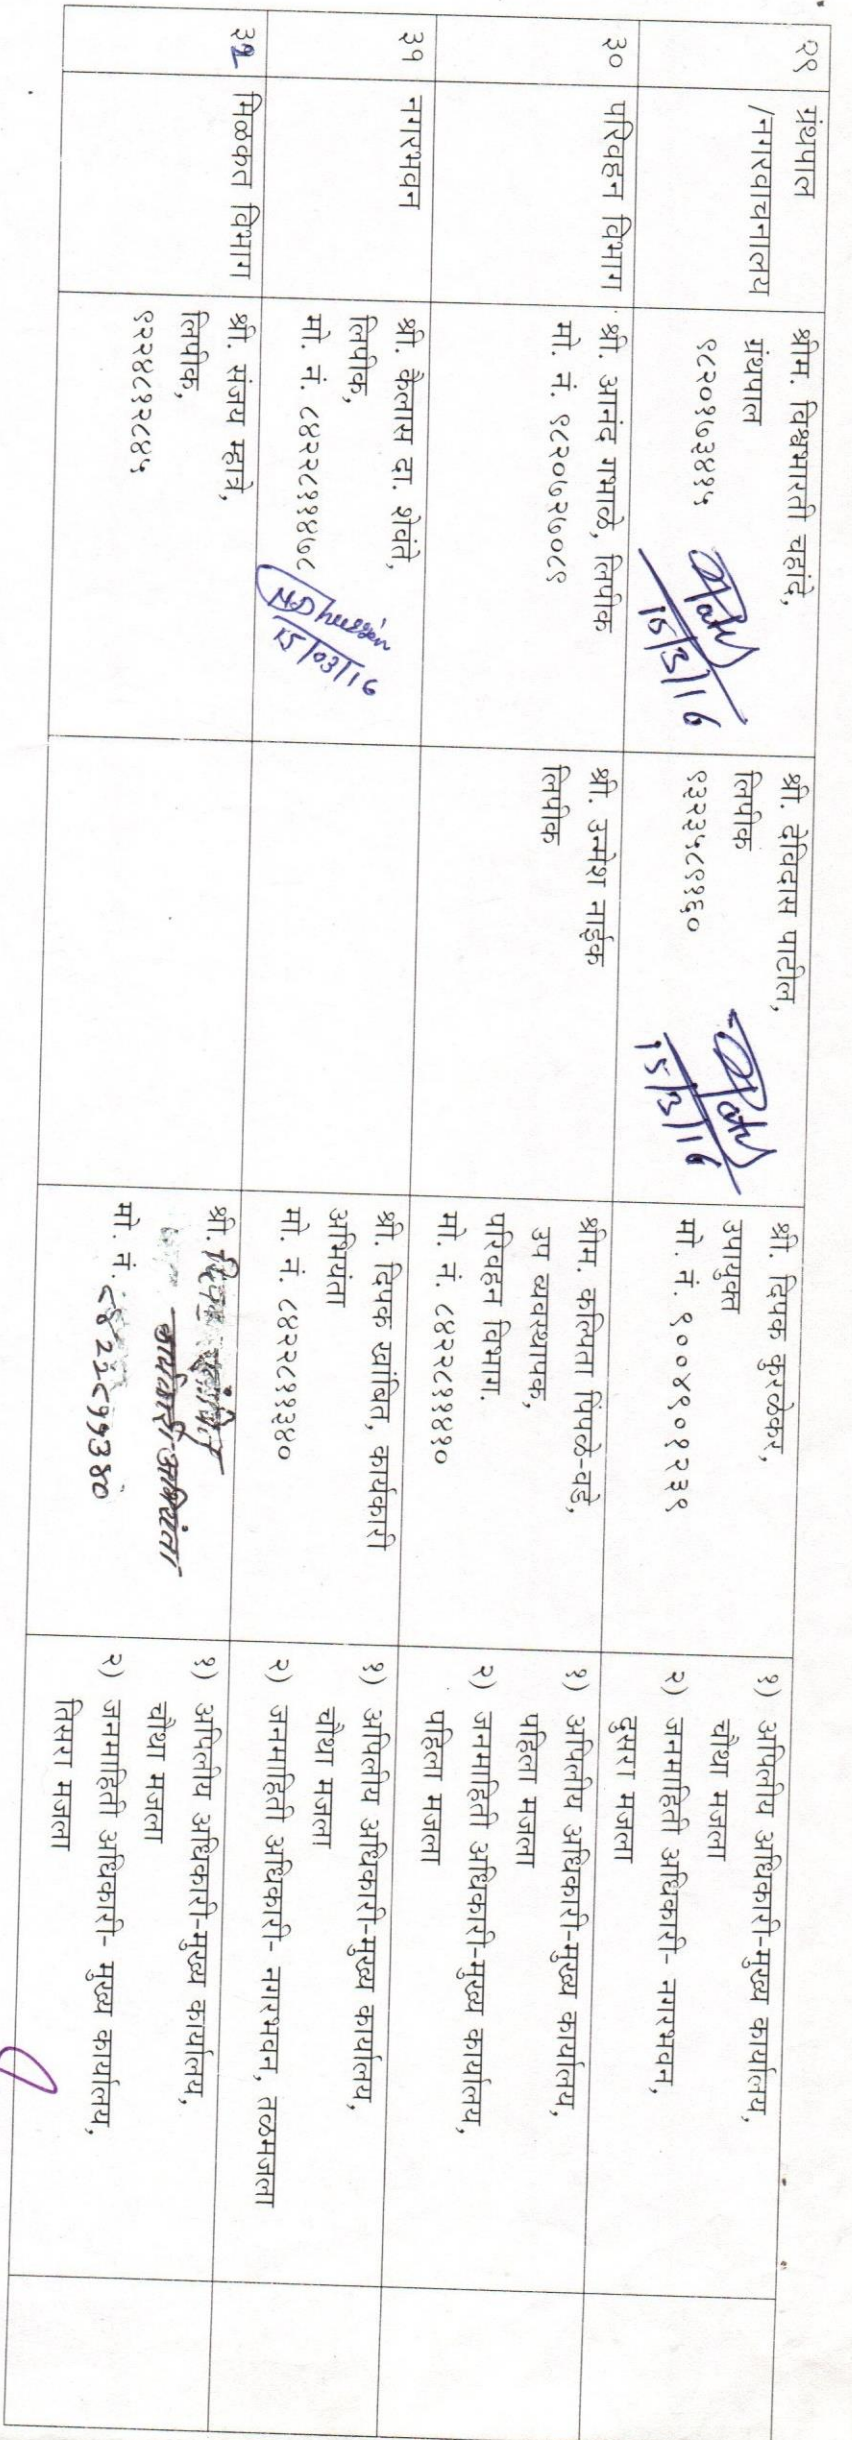 २९
ग्रंथपाल
/नगरवाचनालय
श्रीम. विश्वभारती चहांदे,
ग्रंथपाल
९८२०१७३४१५
15/3/16
श्री. देविदास पाटील,
लिपीक
९३२३५८९१६०
15/3/16
श्री. दिपक कुरळेकर,
उपायुक्त
मो. नं. ९००४९०९२३९
१) अपिलीय अधिकारी-मुख्य कार्यालय,
चौथा मजला
२) जनमाहिती अधिकारी- नगरभवन,
दुसरा मजला
३०
परिवहन विभाग
श्री. आनंद गभाळे, लिपीक
मो. नं. ९८२०७२७०८९
श्री. उन्मेश नाईक
लिपीक
श्रीम. कल्पिता पिंपळे-वडे,
उप व्यवस्थापक,
परिवहन विभाग.
मो. नं. ८४२२८११४१०
१) अपिलीय अधिकारी-मुख्य कार्यालय,
पहिला मजला
२) जनमाहिती अधिकारी-मुख्य कार्यालय,
पहिला मजला
३१
नगरभवन
श्री. कैलास दा. शेवंते,
लिपीक,
मो. नं. ८४२२८११४७८
15/03/16
श्री. दिपक खांबित, कार्यकारी
अभियंता
मो. नं. ८४२२८११३४०
१) अपिलीय अधिकारी-मुख्य कार्यालय,
चौथा मजला
२) जनमाहिती अधिकारी- नगरभवन, तळमजला
३२
मिळकत विभाग
श्री. संजय म्हात्रे,
लिपीक,
९२२४८१२८४५
श्री. दिपक खांबित
कार्यकारी अभियंता
मो. नं. ८४२२८११३४०
१) अपिलीय अधिकारी-मुख्य कार्यालय,
चौथा मजला
२) जनमाहिती अधिकारी- मुख्य कार्यालय,
तिसरा मजला